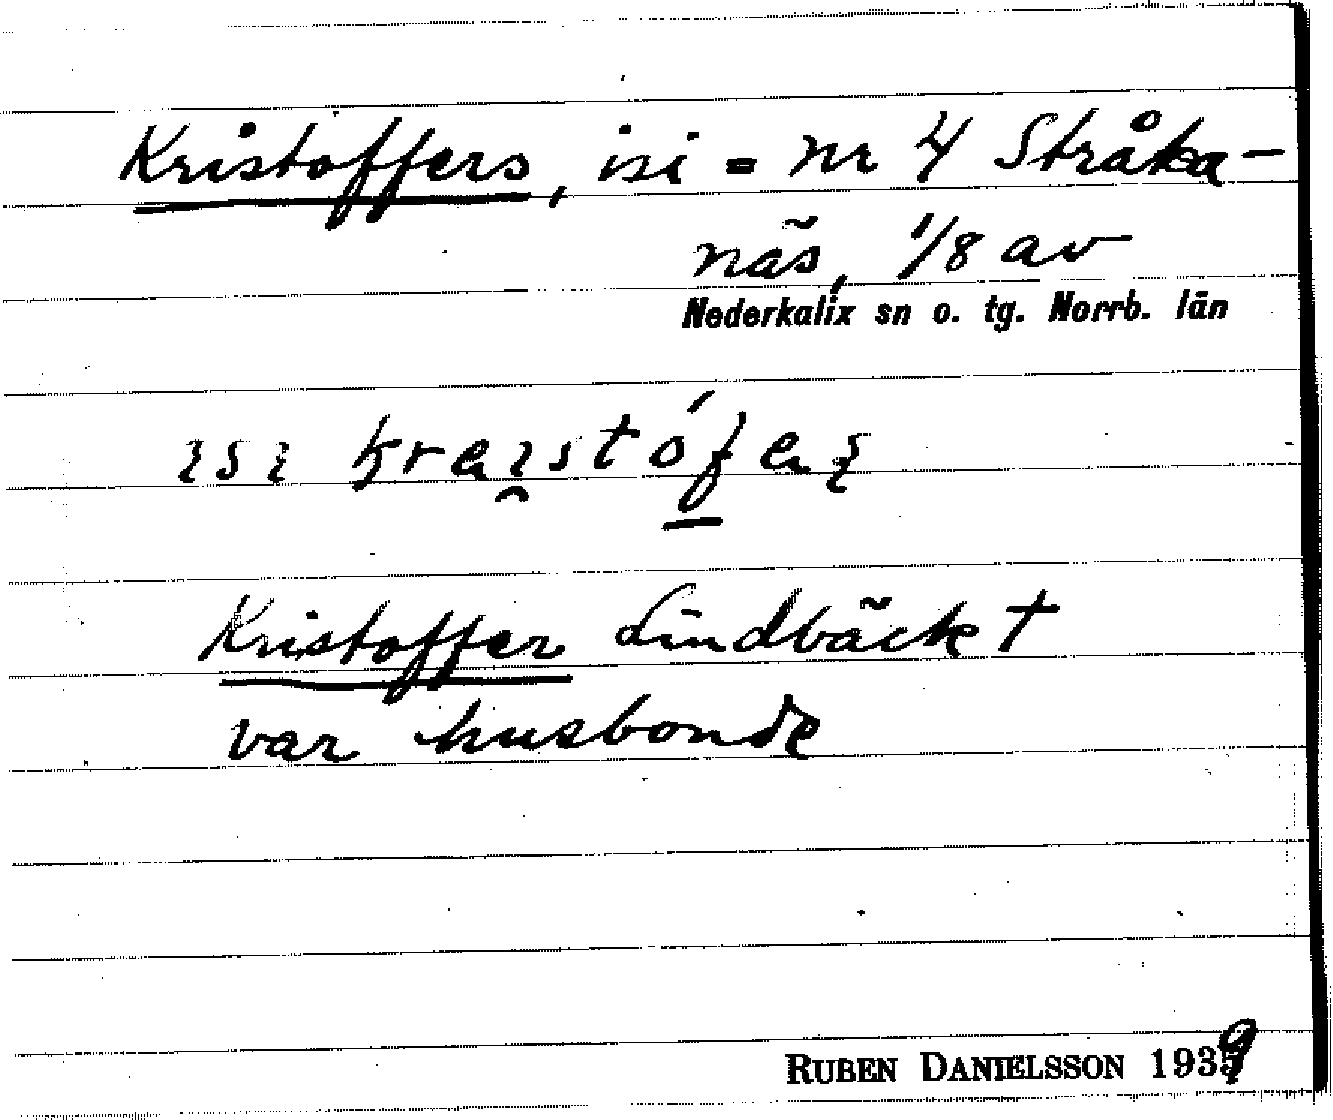 Kristoffers, isi = nr 4 Stråka-
näs, 1/8 av
Nederkalix sn o. tg. Norrb. län
Kristoffer Lindbäck †
var husbonde
RUBEN DANIELSSON 1939